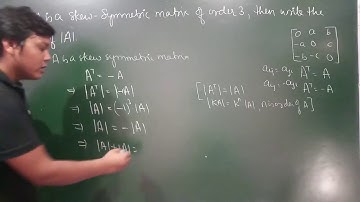 is a skew-Symmetric matrix of order 3, then write the
of |A|.
A is a skew symmetric matrix
A' = -A
⇒ |A'| = |-A|
⇒ |A| = (-1)³ |A|
⇒ |A| = -|A|
⇒ |A|+|A| =
0 a b
-a 0 c
-b -c 0
A' = A
A' = -A
[|A'| = |A|
|KA| = Kⁿ |A|, n is order of A]